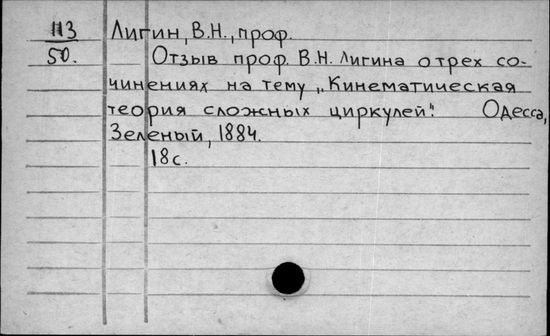 113 Лигин, В.Н., проф.
50. Отзыв проф. В.Н. Лигина о трех со-
чинениях на тему „Кинематическая
теория сложных циркулей". Одесса,
Зеленый, 1884.
18 с.